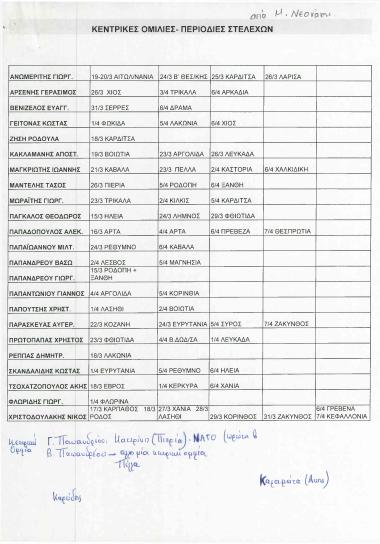 από Μ. Νεονάκη
ΚΕΝΤΡΙΚΕΣ ΟΜΙΛΙΕΣ- ΠΕΡΙΟΔΙΕΣ ΣΤΕΛΕΧΩΝ
ΑΝΩΜΕΡΙΤΗΣ ΓΙΩΡΓ. 19-20/3 ΑΙΤΩΛ/ΝΑΝΙΑ 24/3 Β΄ ΘΕΣ/ΚΗΣ 25/3 ΚΑΡΔΙΤΣΑ 26/3 ΛΑΡΙΣΑ
ΑΡΣΕΝΗΣ ΓΕΡΑΣΙΜΟΣ 26/3 ΧΙΟΣ 3/4 ΤΡΙΚΑΛΑ 6/4 ΑΡΚΑΔΙΑ
ΒΕΝΙΖΕΛΟΣ ΕΥΑΓΓ. 31/3 ΣΕΡΡΕΣ 6/4 ΔΡΑΜΑ
ΓΕΙΤΟΝΑΣ ΚΩΣΤΑΣ 1/4 ΦΩΚΙΔΑ 5/4 ΛΑΚΩΝΙΑ 6/4 ΧΙΟΣ
ΖΗΣΗ ΡΟΔΟΥΛΑ 18/3 ΚΑΡΔΙΤΣΑ
ΚΑΚΛΑΜΑΝΗΣ ΑΠΟΣΤ. 19/3 ΒΟΙΩΤΙΑ 23/3 ΑΡΓΟΛΙΔΑ 26/3 ΛΕΥΚΑΔΑ
ΜΑΓΚΡΙΩΤΗΣ ΙΩΑΝΝΗΣ 21/3 ΚΑΒΑΛΑ 23/3 ΠΕΛΛΑ 2/4 ΚΑΣΤΟΡΙΑ 6/4 ΧΑΛΚΙΔΙΚΗ
ΜΑΝΤΕΛΗΣ ΤΑΣΟΣ 26/3 ΠΙΕΡΙΑ 5/4 ΡΟΔΟΠΗ 6/4 ΞΑΝΘΗ
ΜΩΡΑΪΤΗΣ ΓΙΩΡΓ. 23/3 ΤΡΙΚΑΛΑ 2/4 ΚΙΛΚΙΣ 5/4 ΚΑΡΔΙΤΣΑ
ΠΑΓΚΑΛΟΣ ΘΕΟΔΩΡΟΣ 15/3 ΗΛΕΙΑ 24/3 ΛΗΜΝΟΣ 29/3 ΦΘΙΩΤΙΔΑ
ΠΑΠΑΔΟΠΟΥΛΟΣ ΑΛΕΚ. 16/3 ΑΡΤΑ 4/4 ΑΡΤΑ 6/4 ΠΡΕΒΕΖΑ 7/4 ΘΕΣΠΡΩΤΙΑ
ΠΑΠΑΪΩΑΝΝΟΥ ΜΙΛΤ. 24/3 ΡΕΘΥΜΝΟ 6/4 ΚΑΒΑΛΑ
ΠΑΠΑΝΔΡΕΟΥ ΒΑΣΩ 2/4 ΛΕΣΒΟΣ 5/4 ΜΑΓΝΗΣΙΑ
ΠΑΠΑΝΔΡΕΟΥ ΓΙΩΡΓ. 15/3 ΡΟΔΟΠΗ + ΞΑΝΘΗ
ΠΑΠΑΝΤΩΝΙΟΥ ΓΙΑΝΝΟΣ 4/4 ΑΡΓΟΛΙΔΑ 5/4 ΚΟΡΙΝΘΙΑ
ΠΑΠΟΥΤΣΗΣ ΧΡΗΣΤ. 1/4 ΛΑΣΙΘΙ 2/4 ΒΟΙΩΤΙΑ
ΠΑΡΑΣΚΕΥΑΣ ΑΥΓΕΡ. 22/3 ΚΟΖΑΝΗ 24/3 ΕΥΡΥΤΑΝΙΑ 5/4 ΣΥΡΟΣ 7/4 ΖΑΚΥΝΘΟΣ
ΠΡΩΤΟΠΑΠΑΣ ΧΡΗΣΤΟΣ 23/3 ΦΘΙΩΤΙΔΑ 4/4 Β.ΔΩΔ/ΣΑ 1/4 ΛΕΥΚΑΔΑ
ΡΕΠΠΑΣ ΔΗΜΗΤΡ. 18/3 ΛΑΚΩΝΙΑ
ΣΚΑΝΔΑΛΙΔΗΣ ΚΩΣΤΑΣ 1/4 ΕΥΡΥΤΑΝΙΑ 5/4 ΡΕΘΥΜΝΟ 6/4 ΗΛΕΙΑ
ΤΣΟΧΑΤΖΟΠΟΥΛΟΣ ΑΚΗΣ 18/3 ΕΒΡΟΣ 1/4 ΚΕΡΚΥΡΑ 6/4 ΧΑΝΙΑ
ΦΛΩΡΙΔΗΣ ΓΙΩΡΓ. 1/4 ΦΛΩΡΙΝΑ
ΧΡΙΣΤΟΔΟΥΛΑΚΗΣ ΝΙΚΟΣ 17/3 ΚΑΡΠΑΘΟΣ 18/3 ΡΟΔΟΣ 27/3 ΧΑΝΙΑ 28/3 ΛΑΣΗΘΙ 29/3 ΚΟΡΙΝΘΟΣ 31/3 ΖΑΚΥΝΘΟΣ 6/4 ΓΡΕΒΕΝΑ 7/4 ΚΕΦΑΛΛΟΝΙΑ
Γ. Παπανδρέου: Κατερίνη (Πιερία) - ΝΑΤΟ
Β. Παπανδρέου - άλλη μία κεντρική ομιλία
Πέλλα
Καλαμάτα (Άκης)